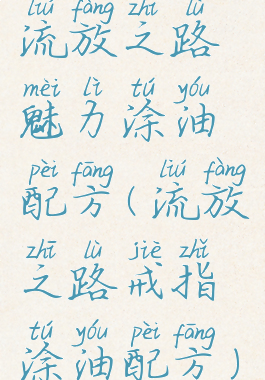 liú fàng zhī lù
流放之路
mèi lì tú yóu
魅力涂油
pèi fāng liú fàng
配方(流放
zhī lù jiè zhǐ
之路戒指
tú yóu pèi fāng
涂油配方)